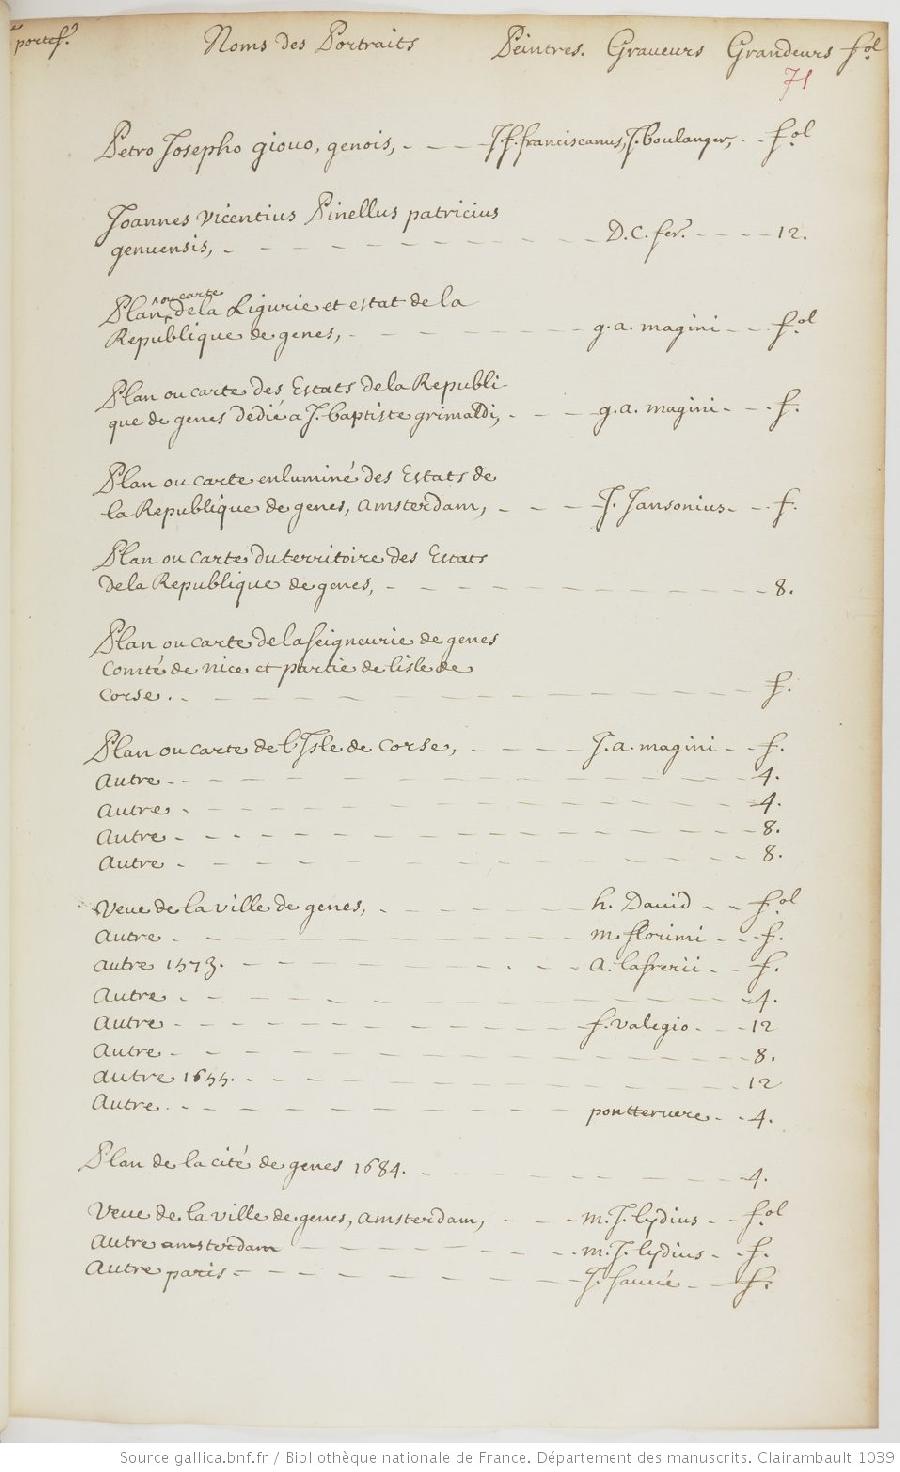 portef.^s Noms des Portraits Peintres. Graveurs Grandeurs fol
71
Petro Josepho giouo, genois, - - - J. f. franciscanus, J. boulanger, - - fol
Joannes vicentius Pinellus patricius
genuensis, - - - - - - - - D. C. fer. - - - - 12.
Plan ou carte de la Ligurie et estat de la
Republique de genes, - - - - - - g. a. magini - - fol
Plan ou carte des Estats de la Republi
que de genes dedié a J. baptiste grimaldi, - - - g. a. magini - - f.
Plan ou carte enluminé des Estats de
la Republique de genes, amsterdam, - - - J. Jansonius - - f.
Plan ou carte du territoire des Estats
de la Republique de genes, - - - - - - - - 8.
Plan ou carte de la seigneurie de genes
Comté de nice et partie de lisle de
Corse. - - - - - - - - - - f.
Plan ou carte de l'Isle de Corse, - - - - J. a. magini - - f.
Autre - - - - - - - - - - 4.
Autre - - - - - - - - - - 4.
Autre - - - - - - - - - - 8.
Autre - - - - - - - - - - 8.
Veue de la ville de genes, - - - - h. David - - fol
Autre - - - - - - m. florimi - - f.
autre 1573. - - - - - - a. lafrerii - - f.
Autre - - - - - - - - - 4.
Autre - - - - - - f. valegio - - - 12
Autre - - - - - - - - - 8.
Autre 1655. - - - - - - - - 12
Autre - - - - - - - - 4.
Plan de la cité de genes 1684. - - - - - 4.
Veue de la ville de genes, amsterdam, - - - m. J. lydius - fol
Autre amsterdam - - - - - m. J. lydius - - f.
Autre paris - - - - - - - - f.
Source gallica.bnf.fr / Bibliothèque nationale de France. Département des manuscrits. Clairambault 1039